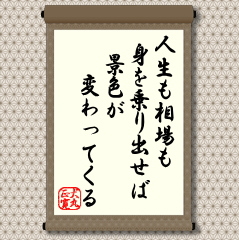 人生も相場も
身を乗り出せば
景色が
変わってくる